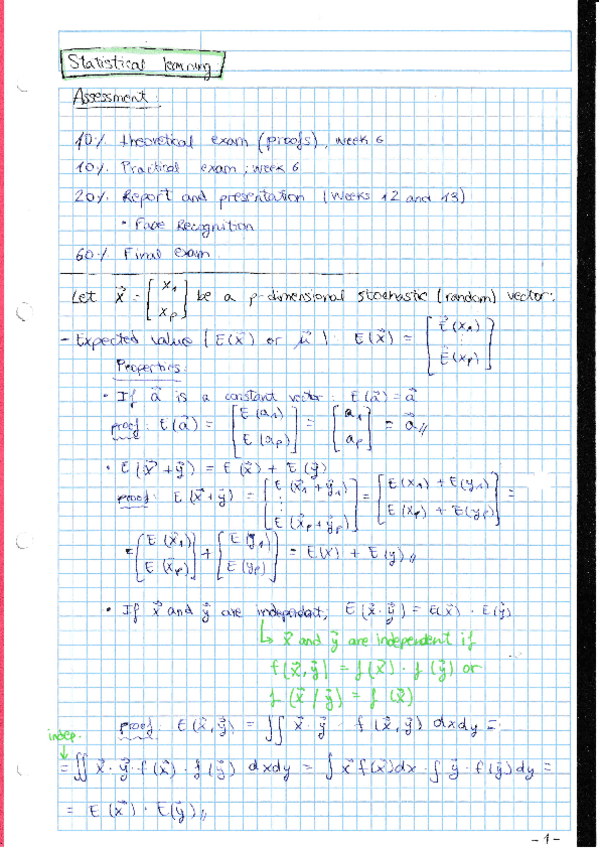 Statistical learning
Assessment:
10% theoretical exam (proofs), week 6
10% Practical exam; week 6
20% Report and presentation (weeks 12 and 13)
• Face Recognition
60% Final exam
Let x⃗ = [x₁ x_p] be a p-dimensional stochastic (random) vector:
- Expected value [E(x⃗) or μ⃗]: E(x⃗) = [E(x₁) ⋮ E(x_p)]
Properties:
• If a⃗ is a constant vector: E(a⃗) = a⃗
proof: E(a⃗) = [E(a₁) E(a_p)] = [a₁ a_p] = a⃗ //
• E(x⃗+y⃗) = E(x⃗) + E(y⃗)
proof: E(x⃗+y⃗) = [E(x⃗₁+y⃗₁) ⋮ E(x⃗_p+y⃗_p)] = [E(x₁) + E(y₁) E(x_p) + E(y_p)] =
= [E(x⃗₁) E(x⃗_p)] + [E(y₁) E(y_p)] = E(x) + E(y) //
• If x⃗ and y⃗ are independant; E(x⃗·y⃗) = E(x⃗) · E(y⃗)
↳ x⃗ and y⃗ are independent if
f(x⃗,y⃗) = f(x⃗) · f(y⃗) or
f(x⃗/y⃗) = f(x⃗)
proof: E(x⃗,y⃗) = ∬ x⃗·y⃗ · f(x⃗,y⃗) dxdy =
indep.
↓
= ∬ x⃗·y⃗·f(x⃗)·f(y⃗) dxdy = ∫ x⃗ f(x⃗)dx · ∫ y⃗ · f(y⃗)dy =
= E(x⃗) · E(y⃗) //
-1-